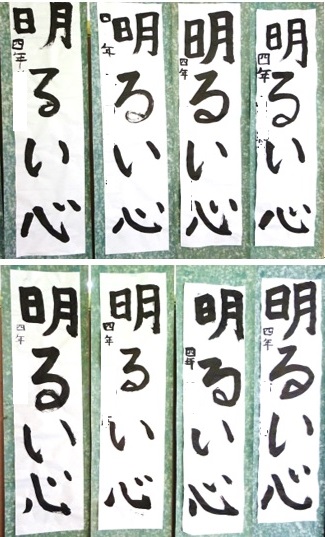 明るい心
四年
明るい心
四年
明るい心
四年
明るい心
四年
明るい心
四年
明るい心
四年
明るい心
四年
明るい心
四年